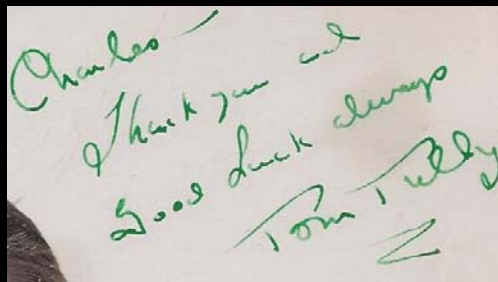 Charles -
Thank you and
Good Luck always
Tom Tully